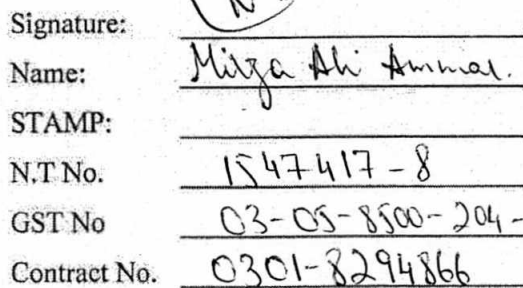 Signature:
Name: Mirza Ali Ammar.
STAMP:
N.T No. 1547417-8
GST No 03-05-8500-204-
Contract No. 0301-8294866